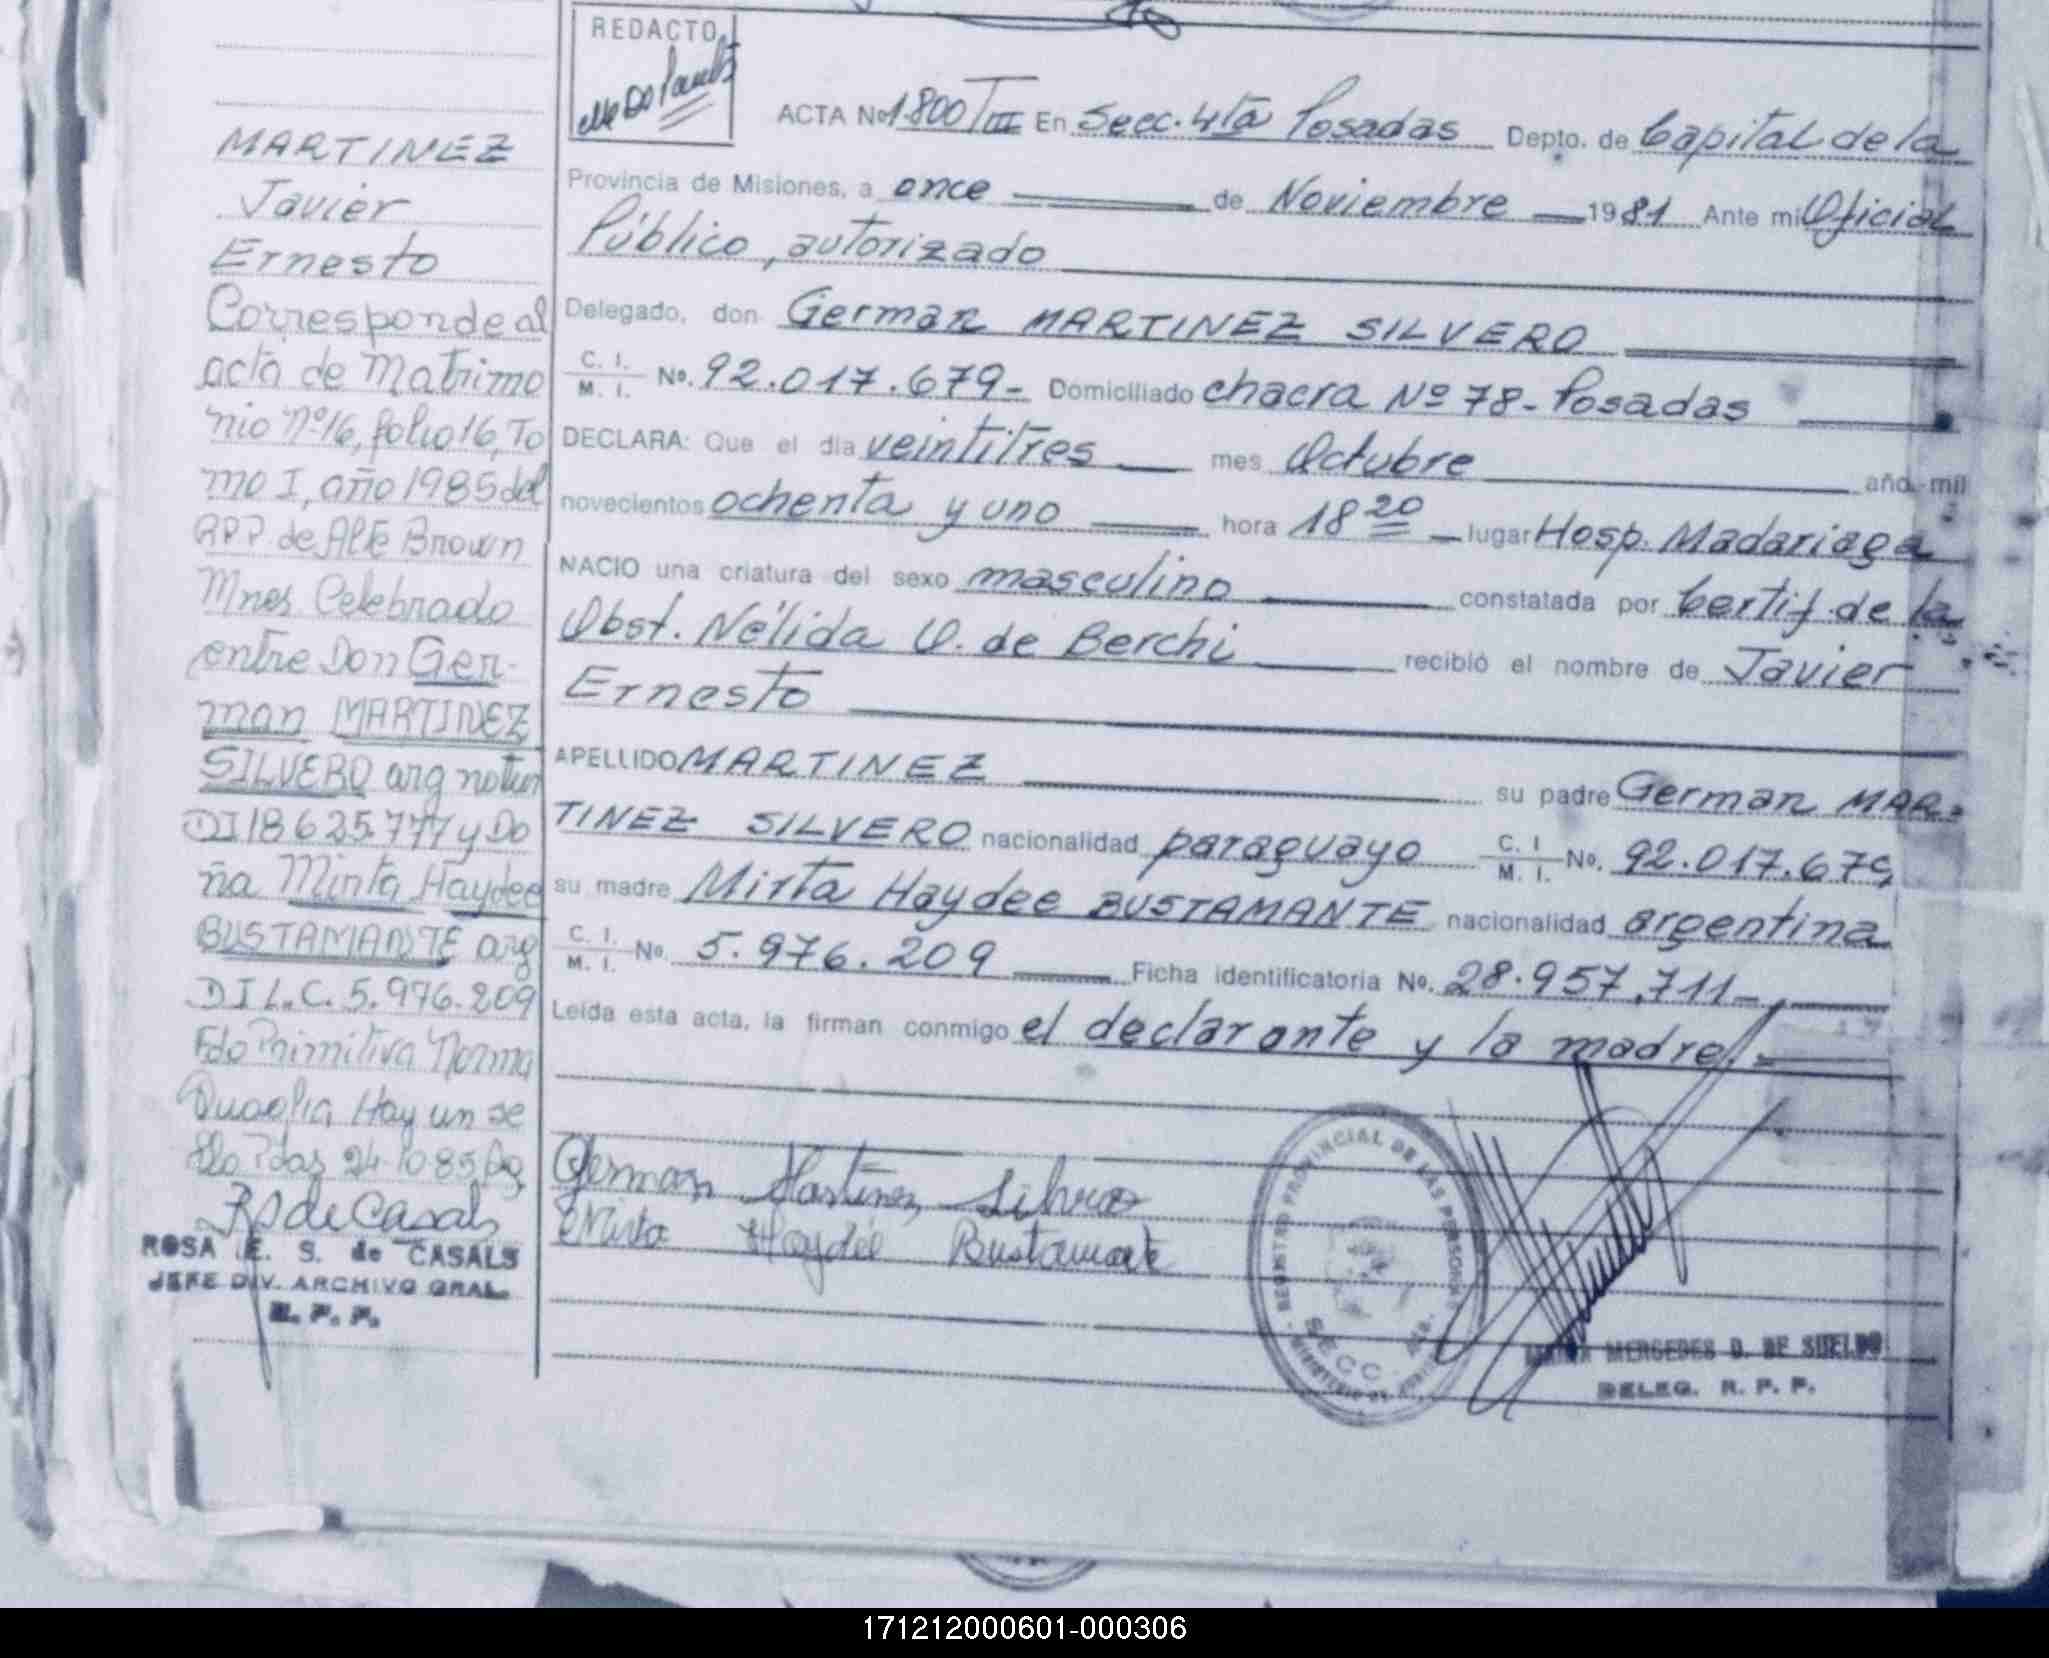 MARTINEZ
Javier
Ernesto
Corresponde al
acta de Matrimo
nio Nº16, folio 16, To
mo I, año 1985 del
RPP de Alte Brown
Mnes Celebrado
entre Don Ger-
man MARTINEZ
SILVERO arg
DI 18625.777 y Do
ña Mirta Haydee
BUSTAMANTE arg
DI L.C. 5.976.209
Fdo Primitiva Norma
Hay un se
llo Pdas 24-10-85
RS de Casals
ROSA E. S. de CASALS
JEFE DIV. ARCHIVO GRAL.
R. P. P.
REDACTO
ACTA Nº 1800/TIII En Secc. 4ta Posadas Depto. de Capital de la
Provincia de Misiones, a once de Noviembre 1981 Ante mi Oficial
Público, autorizado
Delegado, don German MARTINEZ SILVERO
C. I. M. I. Nº. 92.017.679- Domiciliado chacra Nº 78- Posadas
DECLARA: Que el dia veintitres mes Octubre año mil
novecientos ochenta y uno hora 18 20 lugar Hosp. Madariaga
NACIO una criatura del sexo masculino constatada por Certif. de la
Obst. Nélida O. de Berchi recibió el nombre de Javier
Ernesto
APELLIDO MARTINEZ su padre German MAR-
TINEZ SILVERO nacionalidad paraguayo C. I M. I. Nº. 92.017.679
su madre Mirta Haydee BUSTAMANTE nacionalidad argentina
C. I. M. I. Nº. 5.976.209 Ficha identificatoria Nº. 28.957.711-
Leída esta acta, la firman conmigo el declarante y la madre.-
German Martinez Silvero
Mirta Haydée Bustamante
REGISTRO PROVINCIAL DE LAS PERSONAS
SECC. 4ta.
MERCEDES D. DE SUELDO
DELEG. R. P. P.
171212000601-000306